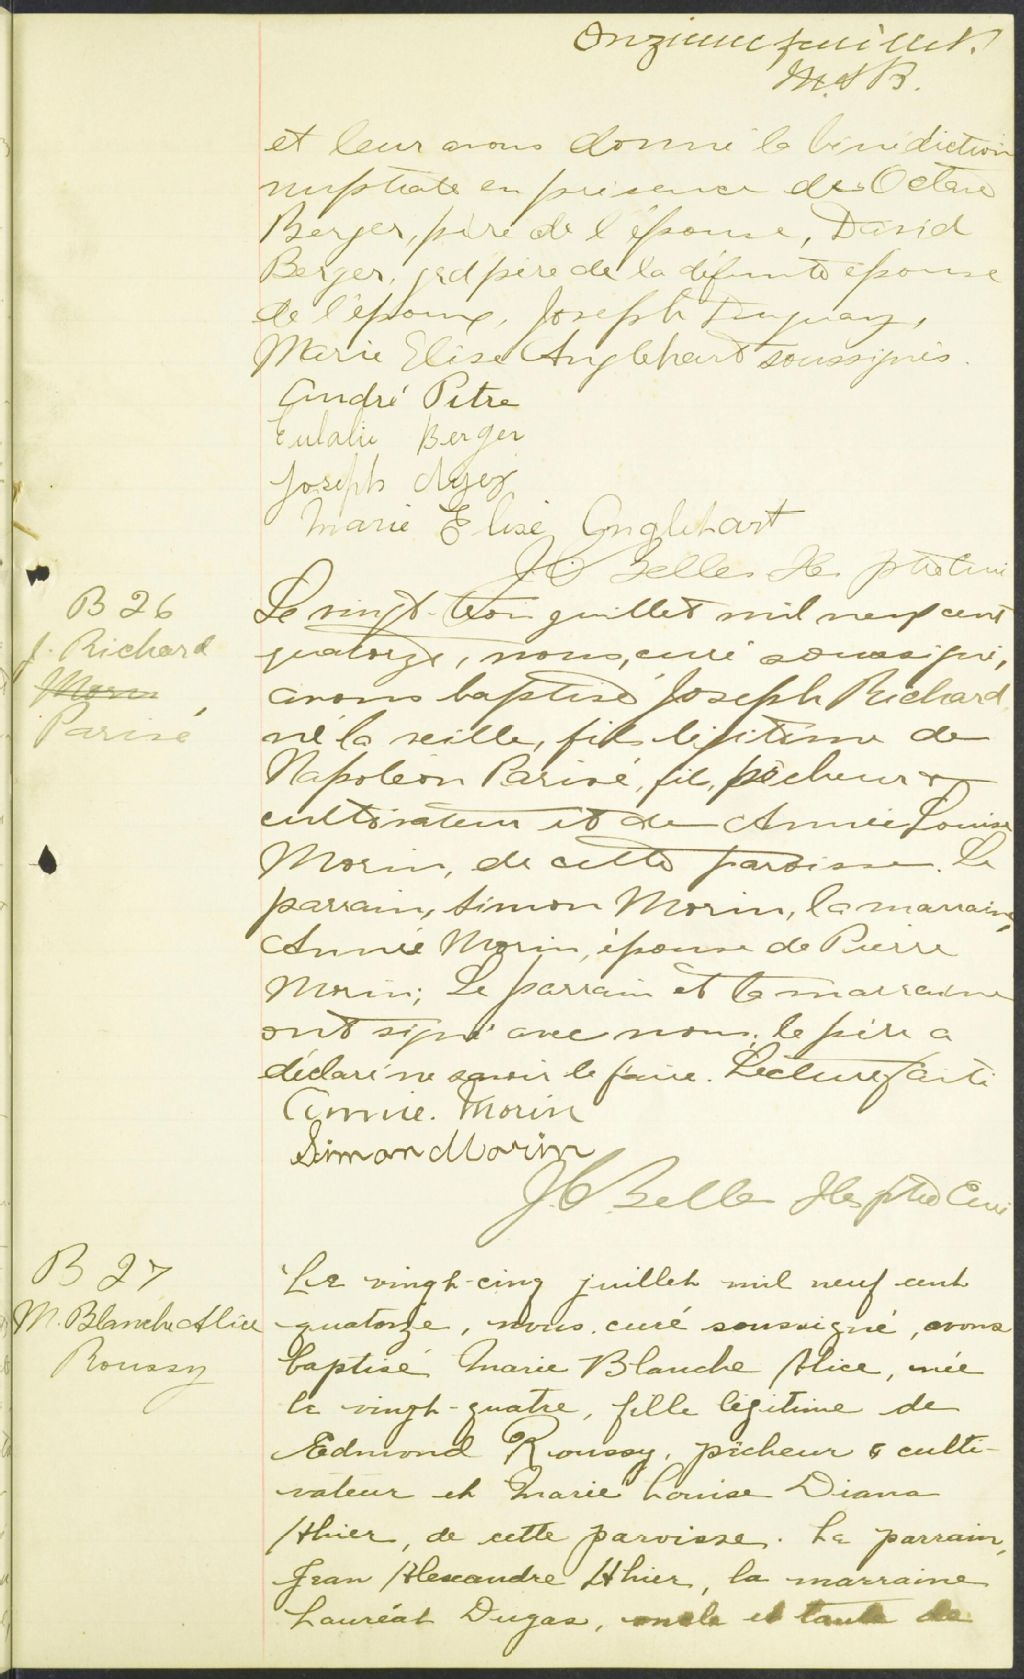 Onzième feuillet.
et leur avons donné la bénédiction
nuptiale en présence de Octave
Berger, père de l'épouse, David
Berger, grd père de la défunte épouse
de l'époux, Joseph Duguay,
Marie Elise Anglehart soussignés.
André Pitre
Eulalie Berger
Joseph
Marie Elise Anglehart
J C Belles Iles ptre Curé
B 26
J. Richard
Morin
Parisé
Le vingt-trois juillet mil neuf cent
quatorze, nous, curé soussigné,
avons baptisé Joseph Richard,
né la veille, fils légitime de
Napoléon Parisé, fils, pêcheur &
cultivateur et de Annie Louise
Morin, de cette paroisse. Le
parrain, Simon Morin, la marraine,
Annie Morin, épouse de Pierre
Morin; Le parrain et la marraine
ont signé avec nous, le père a
déclaré ne savoir le faire. Lecture faite
Annie. Morin
Simon Morin
J C Belles Iles ptre Curé
B 27
M. Blanche Alice
Roussy
Le vingt-cinq juillet mil neuf cent
quatorze, nous, curé soussigné, avons
baptisé Marie Blanche Alice, née
le vingt-quatre, fille légitime de
Edmond Roussy, pêcheur & culti-
vateur et Marie Louise Diana
Ahier, de cette paroisse. Le parrain,
Jean Alexandre Ahier, la marraine
Lauréat Dugas, oncle et tante de